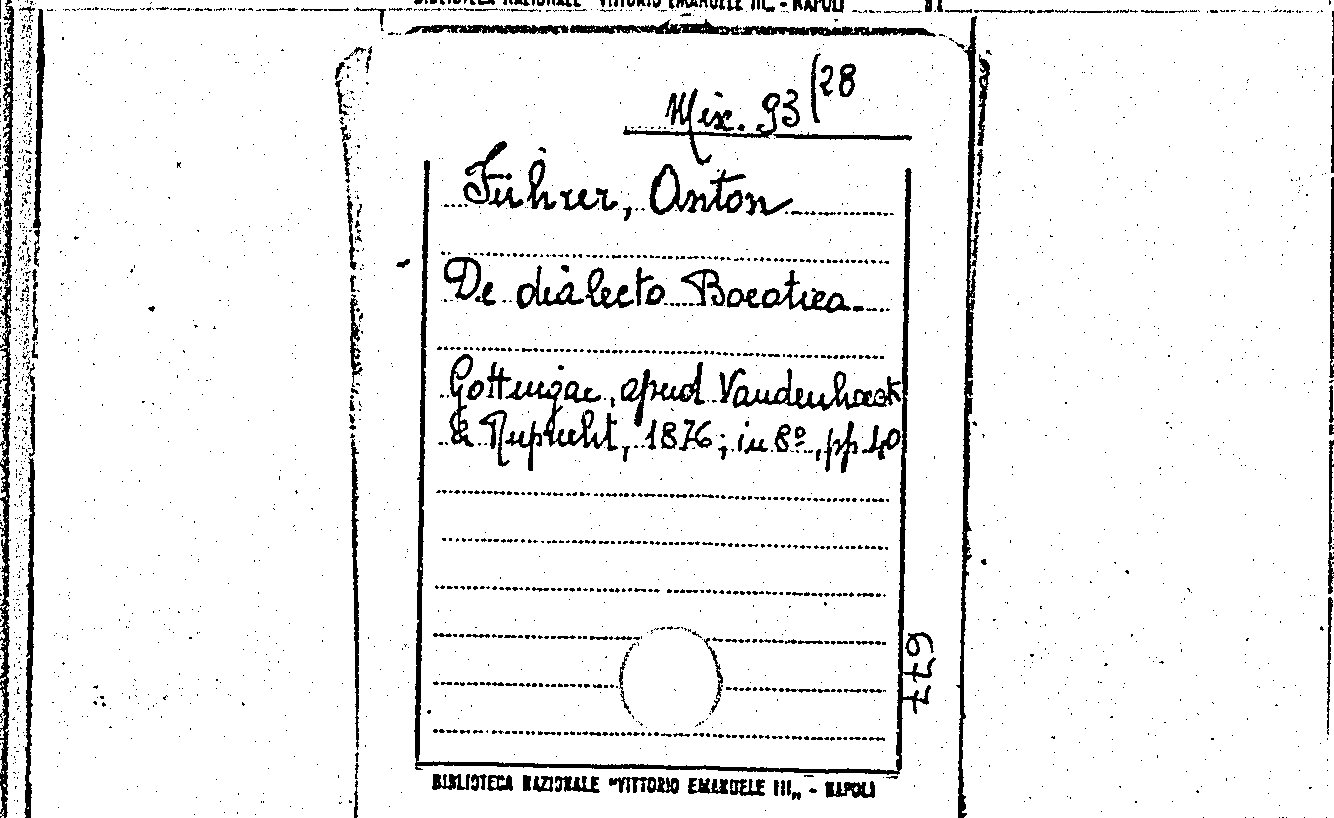 BIBLIOTECA NAZIONALE "VITTORIO EMANUELE III„ - NAPOLI
93 (28
Führer, Anton
De dialecto Boeotica
Gottingae, apud Vandenhoeck
& Ruprecht, 1876; in 8º, pp. 40
677
BIBLIOTECA NAZIONALE "VITTORIO EMANUELE III„ - NAPOLI